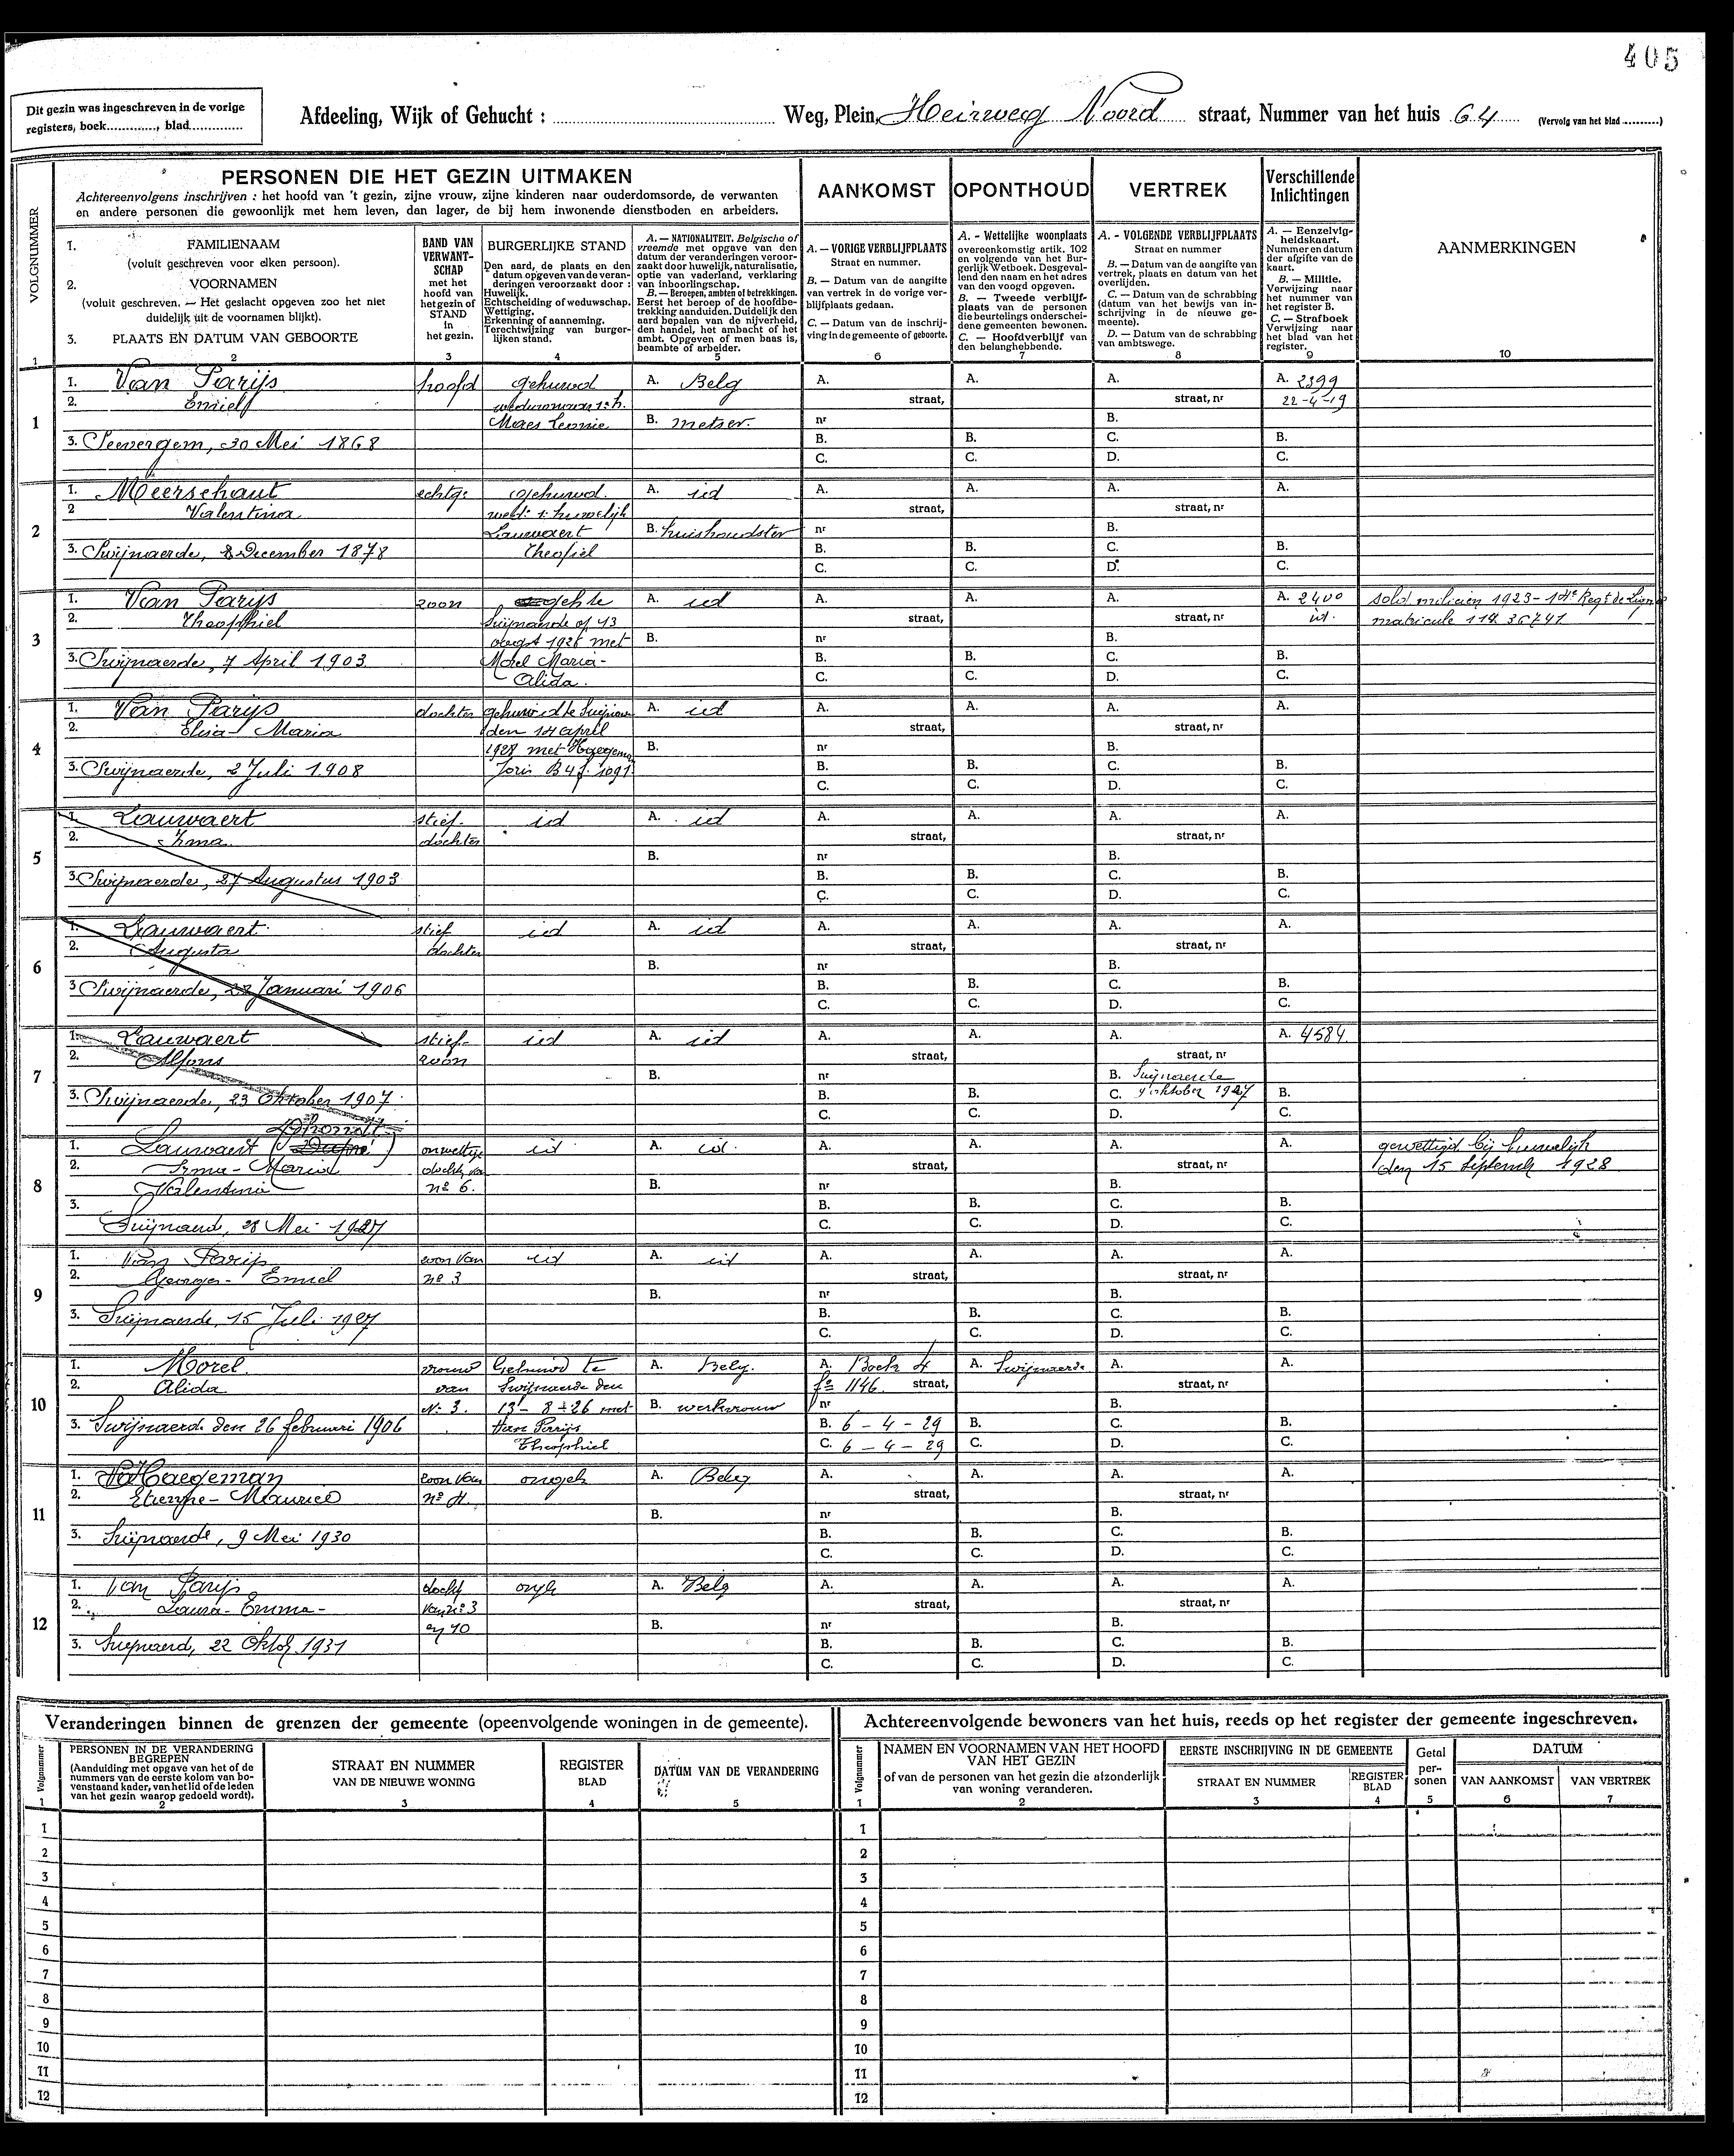 405
Dit gezin was ingeschreven in de vorige
registers, boek............, blad..............
Afdeeling, Wijk of Gehucht : Weg, Plein, Heirweg Noord straat, Nummer van het huis 64 (Vervolg van het blad .........)
VOLGNUMMER
PERSONEN DIE HET GEZIN UITMAKEN
Achtereenvolgens inschrijven : het hoofd van 't gezin, zijne vrouw, zijne kinderen naar ouderdomsorde, de verwanten
en andere personen die gewoonlijk met hem leven, dan lager, de bij hem inwonende dienstboden en arbeiders.
AANKOMST OPONTHOUD VERTREK
Verschillende
Inlichtingen
1. FAMILIENAAM
(voluit geschreven voor elken persoon).
2. VOORNAMEN
(voluit geschreven. — Het geslacht opgeven zoo het niet
duidelijk uit de voornamen blijkt).
3. PLAATS EN DATUM VAN GEBOORTE
BAND VAN
VERWANT-
SCHAP
met het
hoofd van
het gezin of
STAND
in
het gezin.
BURGERLIJKE STAND
Den aard, de plaats en den
datum opgeven van de veran-
deringen veroorzaakt door :
Huwelijk.
Echtscheiding of weduwschap.
Wettiging.
Erkenning of aanneming.
Terechtwijzing van burger-
lijken stand.
A. — NATIONALITEIT. Belgische of
vreemde met opgave van den
datum der veranderingen veroor-
zaakt door huwelijk, naturalisatie,
optie van vaderland, verklaring
van inboorlingschap.
B. — Beroepen, ambten of betrekkingen.
Eerst het beroep of de hoofdbe-
trekking aanduiden. Duidelijk den
aard bepalen van de nijverheid,
den handel, het ambacht of het
ambt. Opgeven of men baas is,
beambte of arbeider.
A. — VORIGE VERBLIJFPLAATS
Straat en nummer.
B. — Datum van de aangifte
van vertrek in de vorige ver-
blijfplaats gedaan.
C. — Datum van de inschrij-
ving in de gemeente of geboorte.
A. - Wettelijke woonplaats
overeenkomstig artik. 102
en volgende van het Bur-
gerlijk Wetboek. Desgeval-
lend den naam en het adres
van den voogd opgeven.
B. — Tweede verblijf-
plaats van de personen
die beurtelings onderschei-
dene gemeenten bewonen.
C. — Hoofdverblijf van
den belanghebbende.
A. - VOLGENDE VERBLIJFPLAATS
Straat en nummer
B. — Datum van de aangifte van
vertrek, plaats en datum van het
overlijden.
C. — Datum van de schrabbing
(datum van het bewijs van in-
schrijving in de nieuwe ge-
meente).
D. — Datum van de schrabbing
van ambtswege.
A. — Eenzelvig-
heidskaart.
Nummer en datum
der afgifte van de
kaart.
B. — Militie.
Verwijzing naar
het nummer van
het register B.
C. — Strafboek
Verwijzing naar
het blad van het
register.
AANMERKINGEN
1 2 3 4 5 6 7 8 9 10
1. Van Parijs hoofd gehuwd A. Belg A. A. A. A. 2399
2. Emiel weduwnaar 1e h. straat, straat, nr 22-4-19
1 Maes Leonie B. metser. nr B.
3. Seevergem, 30 Mei 1868 B. B. C. B.
C. C. D. C.
1. Meerschaut echtg: gehuwd. A. id A. A. A. A.
2 Valentina wed: 1: huwelijk straat, straat, nr
2 Lauwaert B. huishoudster nr B.
3. Swijnaerde, 8 December 1878 Theofiel B. B. C. B.
C. C. D. C.
1. Van Parijs zoon gehte A. id A. A. A. A. 2400 sold. milicien 1923 - Regt de
2. Theophiel Swijnaerde op 13 straat, straat, nr id. matricule 114. 36741
3 oogst 1926 met B. nr B.
3. Swijnaerde, 7 April 1903 Morel Maria- B. B. C. B.
Alida. C. C. D. C.
1. Van Parijs dochter gehuwd te A. id A. A. A. A.
2. Elisa-Maria den 14 april straat, straat, nr
4 1928 met Haegeman B. nr B.
3. Swijnaerde, 2 Juli 1908 Joris B 4 f. 1091 B. B. C. B.
C. C. D. C.
1. Lauwaert stief- id A. id A. A. A. A.
2. Irma dochter straat, straat, nr
5 B. nr B.
3. Swijnaerde, 27 Augustus 1903 B. B. C. B.
C. C. D. C.
1. Lauwaert stief id A. id A. A. A. A.
2. Augusta dochter straat, straat, nr
6 B. nr B.
3 Swijnaerde, 22 Januari 1906 B. B. C. B.
C. C. D. C.
1. Lauwaert stief- id A. id A. A. A. A. 4584
2. Alfons zoon straat, straat, nr
7 B. nr B. Swijnaerde
3. Swijnaerde, 23 Oktober 1907 B. B. C. oktober 1927 B.
C. C. D. C.
Dhondt
1. Lauwaert onwettige id A. id. A. A. A. A. gewettigd bij huwelijk
2. Irma-Maria docht. van straat, straat, nr den 15 septemb 1928
8 Valentina n° 6. B. nr B.
3. B. B. C. B.
Swijnaerd, 28 Mei 1927 C. C. D. C.
1. Van Parijs zoon van id A. id A. A. A. A.
2. Georges-Emiel n° 3 straat, straat, nr
9 B. nr B.
3. Swijnaerde, 15 Juli 1927 B. B. C. B.
C. C. D. C.
1. Morel vrouw Gehuwd te A. belg. A. Boek 4 A. Swijnaerde A. A.
2. Alida van Swijnaerde den f° 1146 straat, straat, nr
10 N: 3. 13 - 8 - 26 met B. werkvrouw nr B.
3. Swijnaerd. den 26 februari 1906 Van Parijs B. 6 - 4 - 29 B. C. B.
Theophiel C. 6 - 4 - 29 C. D. C.
1. Haegeman zoon van ongeh A. Belg A. A. A. A.
2. Etienne-Maurice n° 4. straat, straat, nr
11 B. nr B.
3. Swijnaerde, 9 Mei 1930 B. B. C. B.
C. C. D. C.
1. Van Parijs docht ongh A. Belg A. A. A. A.
2. Laura-Emma- van n° 3 straat, straat, nr
12 en 10 B. nr B.
3. Swijnaerd, 22 Oktob. 1931 B. B. C. B.
C. C. D. C.
Veranderingen binnen de grenzen der gemeente (opeenvolgende woningen in de gemeente).
Volgnummer
PERSONEN IN DE VERANDERING
BEGREPEN
(Aanduiding met opgave van het of de
nummers van de eerste kolom van bo-
venstaand kader, van het lid of de leden
van het gezin waarop gedoeld wordt).
STRAAT EN NUMMER
VAN DE NIEUWE WONING
REGISTER
BLAD
DATUM VAN DE VERANDERING
1 2 3 4 5
1
2
3
4
5
6
7
8
9
10
11
12
Achtereenvolgende bewoners van het huis, reeds op het register der gemeente ingeschreven.
Volgnummer
NAMEN EN VOORNAMEN VAN HET HOOFD
VAN HET GEZIN
of van de personen van het gezin die afzonderlijk
van woning veranderen.
EERSTE INSCHRIJVING IN DE GEMEENTE
STRAAT EN NUMMER
REGISTER
BLAD
Getal
per-
sonen
DATUM
VAN AANKOMST VAN VERTREK
1 2 3 4 5 6 7
1
2
3
4
5
6
7
8
9
10
11
12